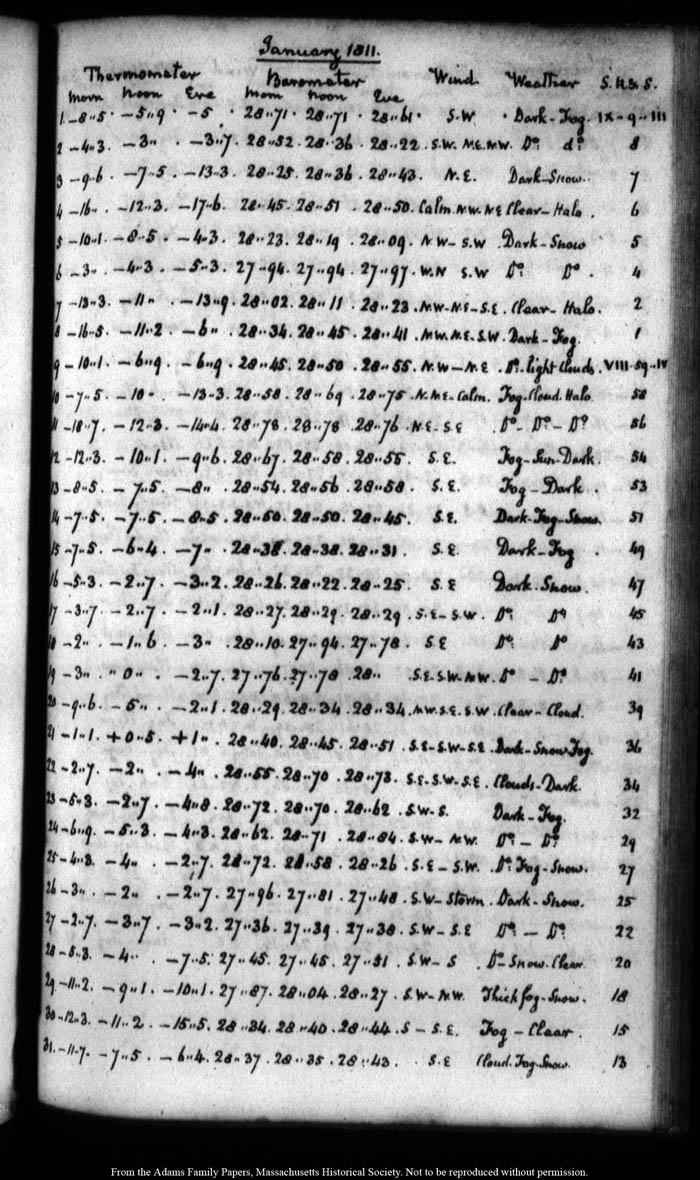 January 1811.
Thermometer Barometer Wind Weather S.R & S.
Morn Noon Eve Morn Noon Eve
1. -8"5 · -5"9 · -5 · 28"71 · 28"71 · 28"61 · S.W · Dark-Fog. IX-9-III
2 -4"3. -3" . -3"7. 28"52. 28"36. 28"22. S.W. N.E. N.W. Do. do. 8
3 -9"6 -7"5 -13"3. 28"25. 28"36. 28"43. N.E. Dark-Snow. 7
4 -16" . -12"3. -17"6. 28"45. 28"51 . 28"50. Calm. N.W. N.E Clear-Halo. 6
5 -10"1. -8"5. -4"3. 28"23. 28"19. 28"09. N.W-S.W. Dark-Snow 5
6 -3" . -4"3. -5"3. 27"94. 27"94. 27"97. W.N S.W Do. Do. 4
7 -13"3. -11" . -13"9. 28"02. 28"11 . 28"23. N.W-N.E-S.E. Clear-Halo. 2
8 -16"5. -11"2. -6" . 28"34. 28"45. 28"41. N.W. N.E. S.W. Dark-Fog. 1
9 -10"1. -6"9. -6"9. 28"45. 28"50. 28"55. N.W-N.E. Do. light Clouds. VIII-59-IV
10 -7"5. -10" . -13"3. 28"58. 28"69. 28"75. N. N.E-Calm. Fog-Cloud. Halo. 58
11 -18"7. -12"3. -14"4. 28"78. 28"78. 28"76. N.E-S.E Do-Do-Do 56
12 -12"3. -10"1. -9"6. 28"67. 28"58. 28"55. S.E. Fog-Sun-Dark. 54
13 -8"5. -7"5. -8" . 28"54. 28"56. 28"58. S.E. Fog-Dark. 53
14 -7"5. -7"5. -8"5. 28"50. 28"50. 28"45. S.E. Dark-Fog-Snow. 51
15 -7"5. -6"4. -7" . 28"38. 28"38. 28"31. S.E. Dark-Fog. 49
16 -5"3. -2"7. -3"2. 28"26. 28"22. 28"25. S.E Dark-Snow. 47
17 -3"7. -2"7. -2"1. 28"27. 28"29. 28"29. S.E-S.W. Do. Do 45
18 -2" . -1"6. -3" . 28"10. 27"94. 27"78. S.E Do. Do 43
19 -3" . "0" . -2"7. 27"76. 27"78. 28" . S.E. S.W. N.W. Do-Do. 41
20 -9"6. -5" . -2"1. 28"29. 28"34. 28"34. N.W. S.E. S.W. Clear-Cloud. 39
21 -1"1. +0"5. +1" . 28"40. 28"45. 28"51. S.E-S.W-S.E. Dark-Snow Fog. 36
22 -2"7. -2" . -4" . 28"55. 28"70. 28"73. S.E-S.W-S.E. Clouds-Dark. 34
23 -5"3. -2"7. -4"8. 28"72. 28"70. 28"62. S.W-S. Dark-Fog. 32
24 -6"9. -5"3. -4"3. 28"62. 28"71. 28"84. S.W-N.W. Do-Do. 29
25 -4"3. -4" . -2"7. 28"72. 28"58. 28"26. S.E-S.W. Do. Fog-Snow. 27
26 -3" . -2" . -2"7. 27"96. 27"81. 27"48. S.W-Storm. Dark-Snow. 25
27 -2"7. -3"7. -3"2. 27"36. 27"39. 27"38. S.W-S.E Do-Do. 22
28 -5"3. -4" . -7"5. 27"45. 27"45. 27"51. S.W-S. Do-Snow. Clear 20
29. -11"2. -9"1. -10"1. 27"87. 28"04. 28"27. S.W-N.W. Thick fog-Snow. 18
30 -12"3. -11"2. -15"5. 28"34. 28"40. 28"44. S-S.E. Fog-Clear. 15
31. -11"7. -7"5. -6"4. 28"37. 28"35. 28"43. S.E Cloud. Fog. Snow. 13
From the Adams Family Papers, Massachusetts Historical Society. Not to be reproduced without permission.